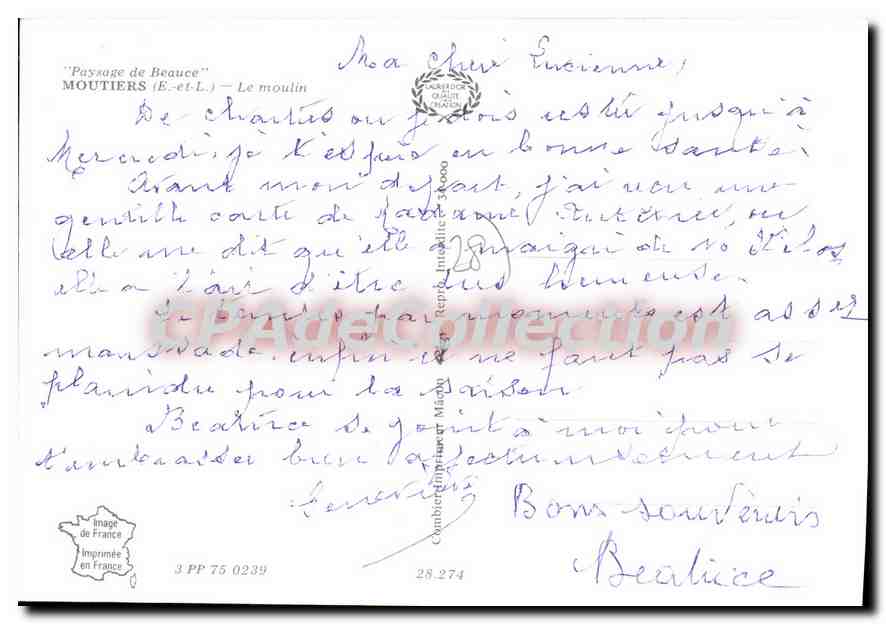 "Paysage de Beauce"
MOUTIERS (E.-et-L.) — Le moulin
LAURIER D'OR
DE LA
QUALITÉ
CRÉATION
Ma chère Lucienne,
De Chartres où je dois resté jusqu'à
Mercredi, je t'espère en bonne santé.
Avant mon départ, j'ai reçu une
gentille carte de Madame où
elle me dit qu'elle a maigri de 10 Kilos
elle a l'air d'être très heureuse.
Le temps par moments est assez
maussade, enfin il ne faut pas se
plaindre pour la saison
Béatrice se joint à moi pour
t'embrasser bien affectueusement
Geneviève
Bons souvenirs
Béatrice
28
Combier Imprimeur Mâcon Repro. Interdite - 30.000
CPAdeCollection
Image
de France
Imprimée
en France
3 PP 75 0239
28.274